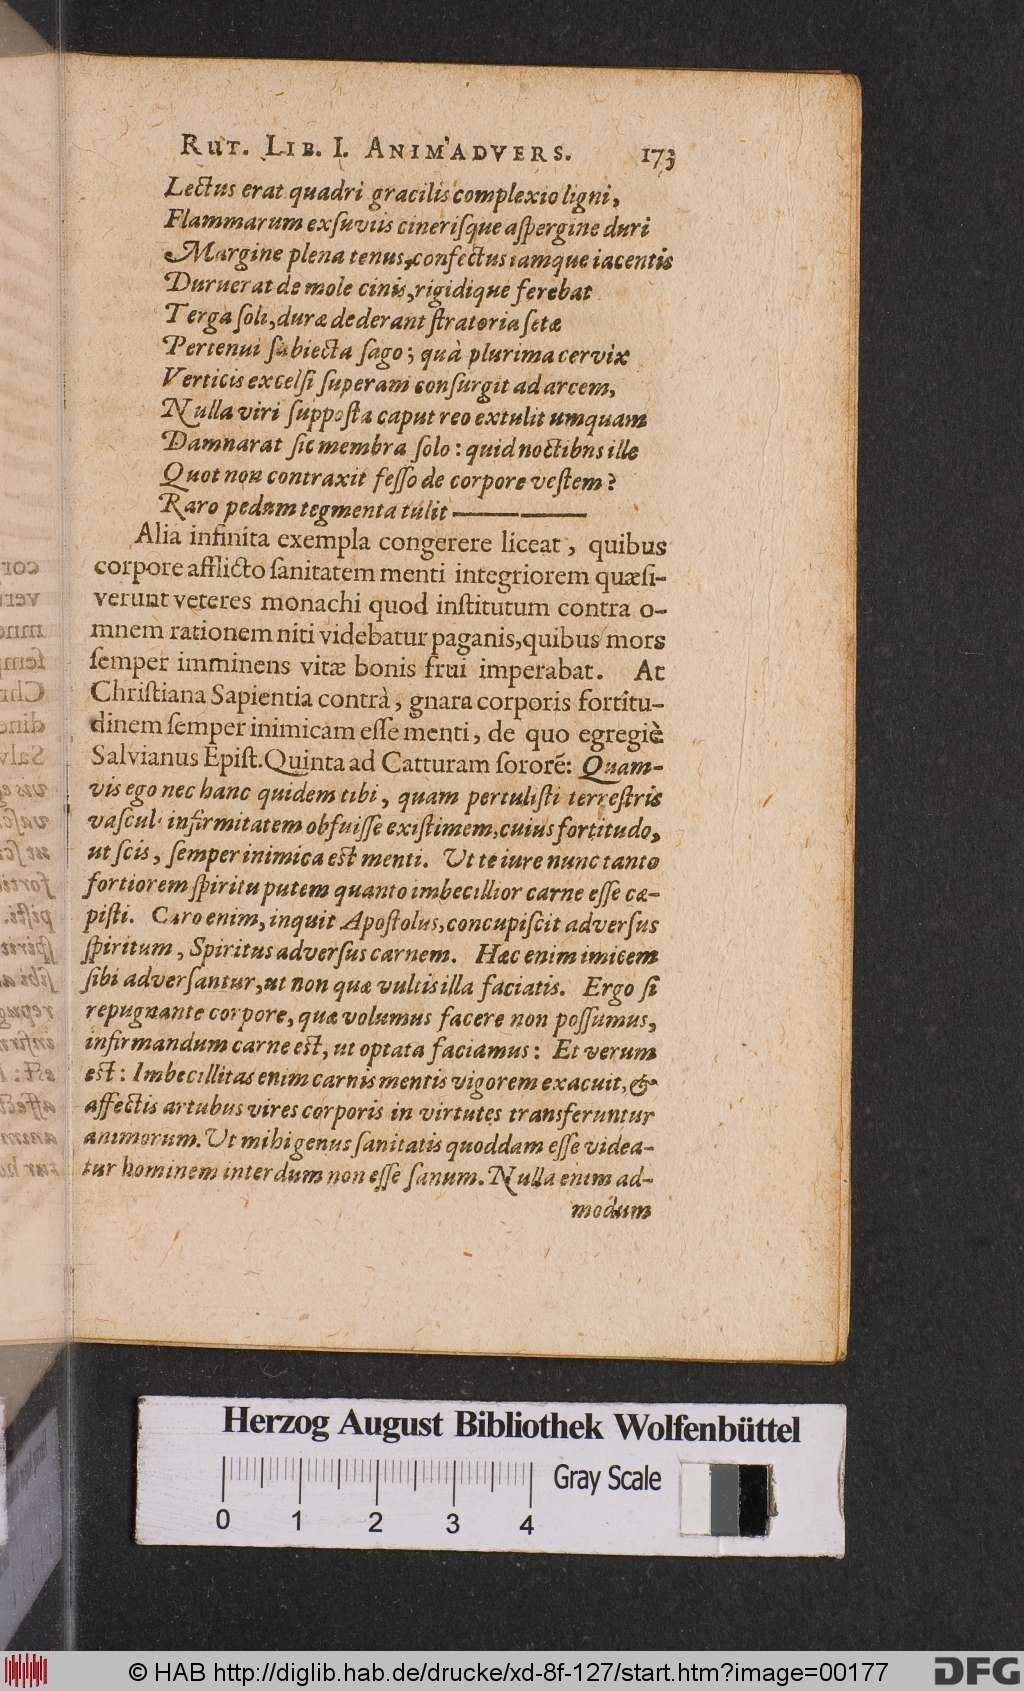 RUT. LIB. I. ANIMADVERS. 173
Lectus erat quadri gracilis complexio ligni,
Flammarum exſuviis cineriſque aſpergine duri
Margine plena tenus, confectus iamque iacentis
Duruerat de mole cinis, rigidique ferebat
Terga ſoli, duræ dederant ſtratoria ſetæ
Pertenui ſubiecta ſago; quà plurima cervix
Verticis excelſi ſuperam conſurgit ad arcem,
Nulla viri ſuppoſta caput reo extulit umquam
Damnarat ſic membra ſolo: quid noctibns ille
Quot non contraxit feſſo de corpore veſtem?
Raro pedum tegmenta tulit ——— ———
Alia infinita exempla congerere liceat, quibus
corpore afflicto ſanitatem menti integriorem quæſi-
verunt veteres monachi quod inſtitutum contra o-
mnem rationem niti videbatur paganis, quibus mors
ſemper imminens vitæ bonis frui imperabat. At
Chriſtiana Sapientia contrà, gnara corporis fortitu-
dinem ſemper inimicam eſſe menti, de quo egregiè
Salvianus Epiſt. Quinta ad Catturam ſororẽ: Quam-
vis ego nec hanc quidem tibi, quam pertuliſti terreſtris
vaſcul infirmitatem obfuiſſe exiſtimem, cuius fortitudo,
ut ſcis, ſemper inimica eſt menti. Ut te iure nunc tanto
fortiorem ſpiritu putem quanto imbecillior carne eſſe cæ-
piſti. Caro enim, inquit Apoſtolus, concupiſcit adverſus
ſpiritum, Spiritus adverſus carnem. Hæc enim imicem
ſibi adverſantur, ut non quæ vultis illa faciatis. Ergo ſi
repugnante corpore, quæ volumus facere non poſſumus,
infirmandum carne eſt, ut optata faciamus: Et verum
eſt: Imbecillitas enim carnis mentis vigorem exacuit, &
affectis artubus vires corporis in virtutes transferuntur
animorum. Ut mihi genus ſanitatis quoddam eſſe videa-
tur hominem interdum non eſſe ſanum. Nulla enim ad-
modum
Herzog August Bibliothek Wolfenbüttel
Gray Scale
0 1 2 3 4
© HAB http://diglib.hab.de/drucke/xd-8f-127/start.htm?image=00177
DFG